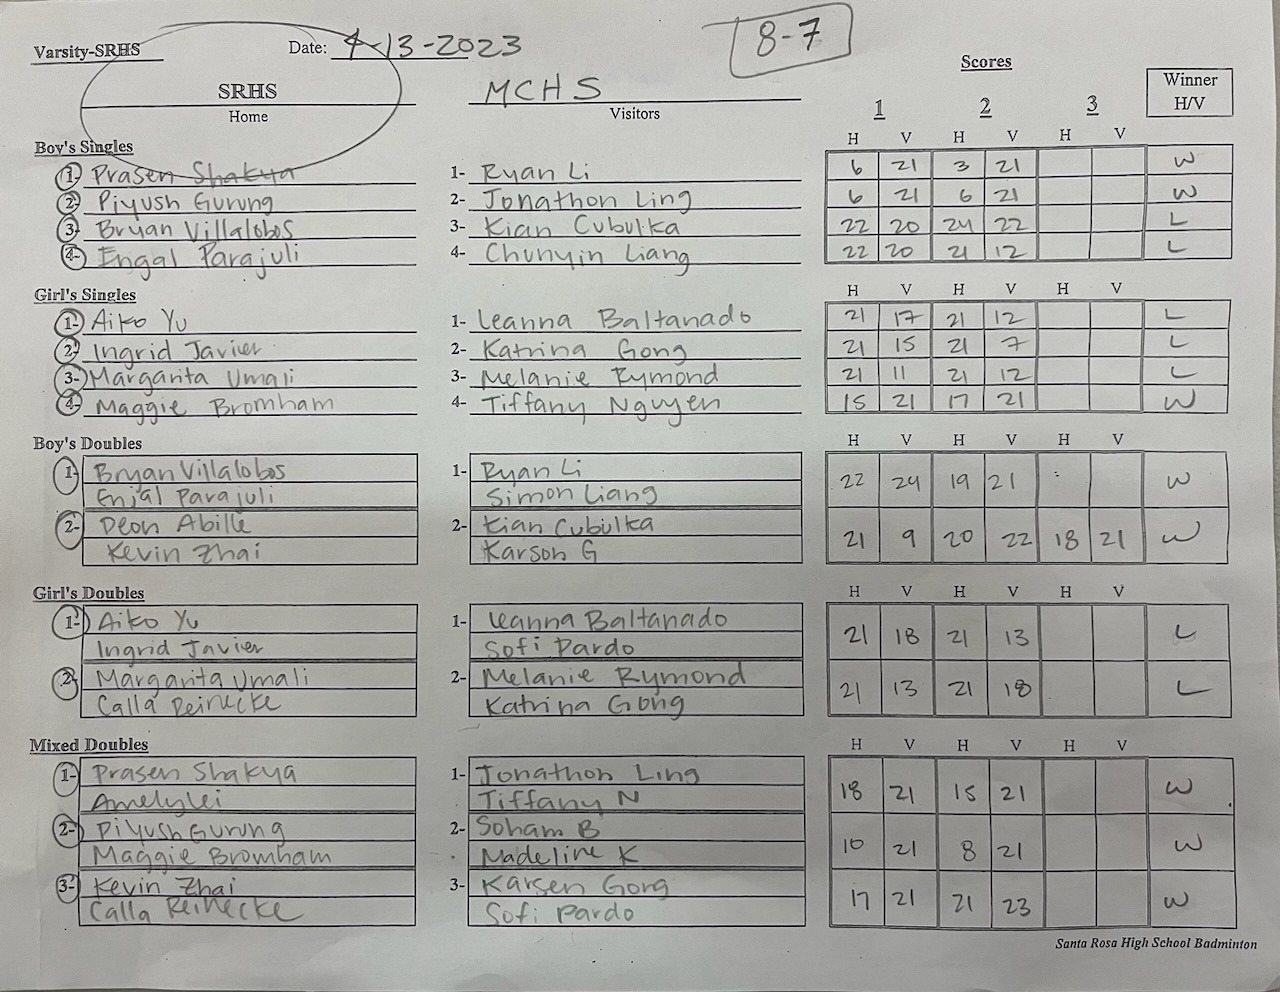 Varsity-SRHS Date: 4-13-2023 8-7
SRHS MCHS Scores Winner H/V
Home Visitors 1 2 3
Boy's Singles H V H V H V
1- Prasen Shakya 1- Ryan Li 6 21 3 21 W
2- Piyush Gurung 2- Jonathon Ling 6 21 6 21 W
3- Bryan Villalobos 3- Kian Cubulka 22 20 24 22 L
4- Engal Parajuli 4- Chunyin Liang 22 20 21 12 L
Girl's Singles H V H V H V
1- Aiko Yu 1- Leanna Baltanado 21 17 21 12 L
2- Ingrid Javier 2- Katrina Gong 21 15 21 7 L
3- Margarita Umali 3- Melanie Rymond 21 11 21 12 L
4- Maggie Bromham 4- Tiffany Nguyen 15 21 17 21 W
Boy's Doubles H V H V H V
1- Bryan Villalobos 1- Ryan Li 22 24 19 21 W
Enjal Parajuli Simon Liang
2- Deon Abille 2- Kian Cubulka 21 9 20 22 18 21 W
Kevin Zhai Karson G
Girl's Doubles H V H V H V
1- Aiko Yu 1- Leanna Baltanado 21 18 21 13 L
Ingrid Javier Sofi Pardo
2- Margarita Umali 2- Melanie Rymond 21 13 21 18 L
Calla Reinecke Katrina Gong
Mixed Doubles H V H V H V
1- Prasen Shakya 1- Jonathon Ling 18 21 15 21 W
Amelylei Tiffany N
2- Piyush Gurung 2- Soham B 10 21 8 21 W
Maggie Bromham Madeline K
3- Kevin Zhai 3- Karsen Gong 17 21 21 23 W
Calla Reinecke Sofi Pardo
Santa Rosa High School Badminton